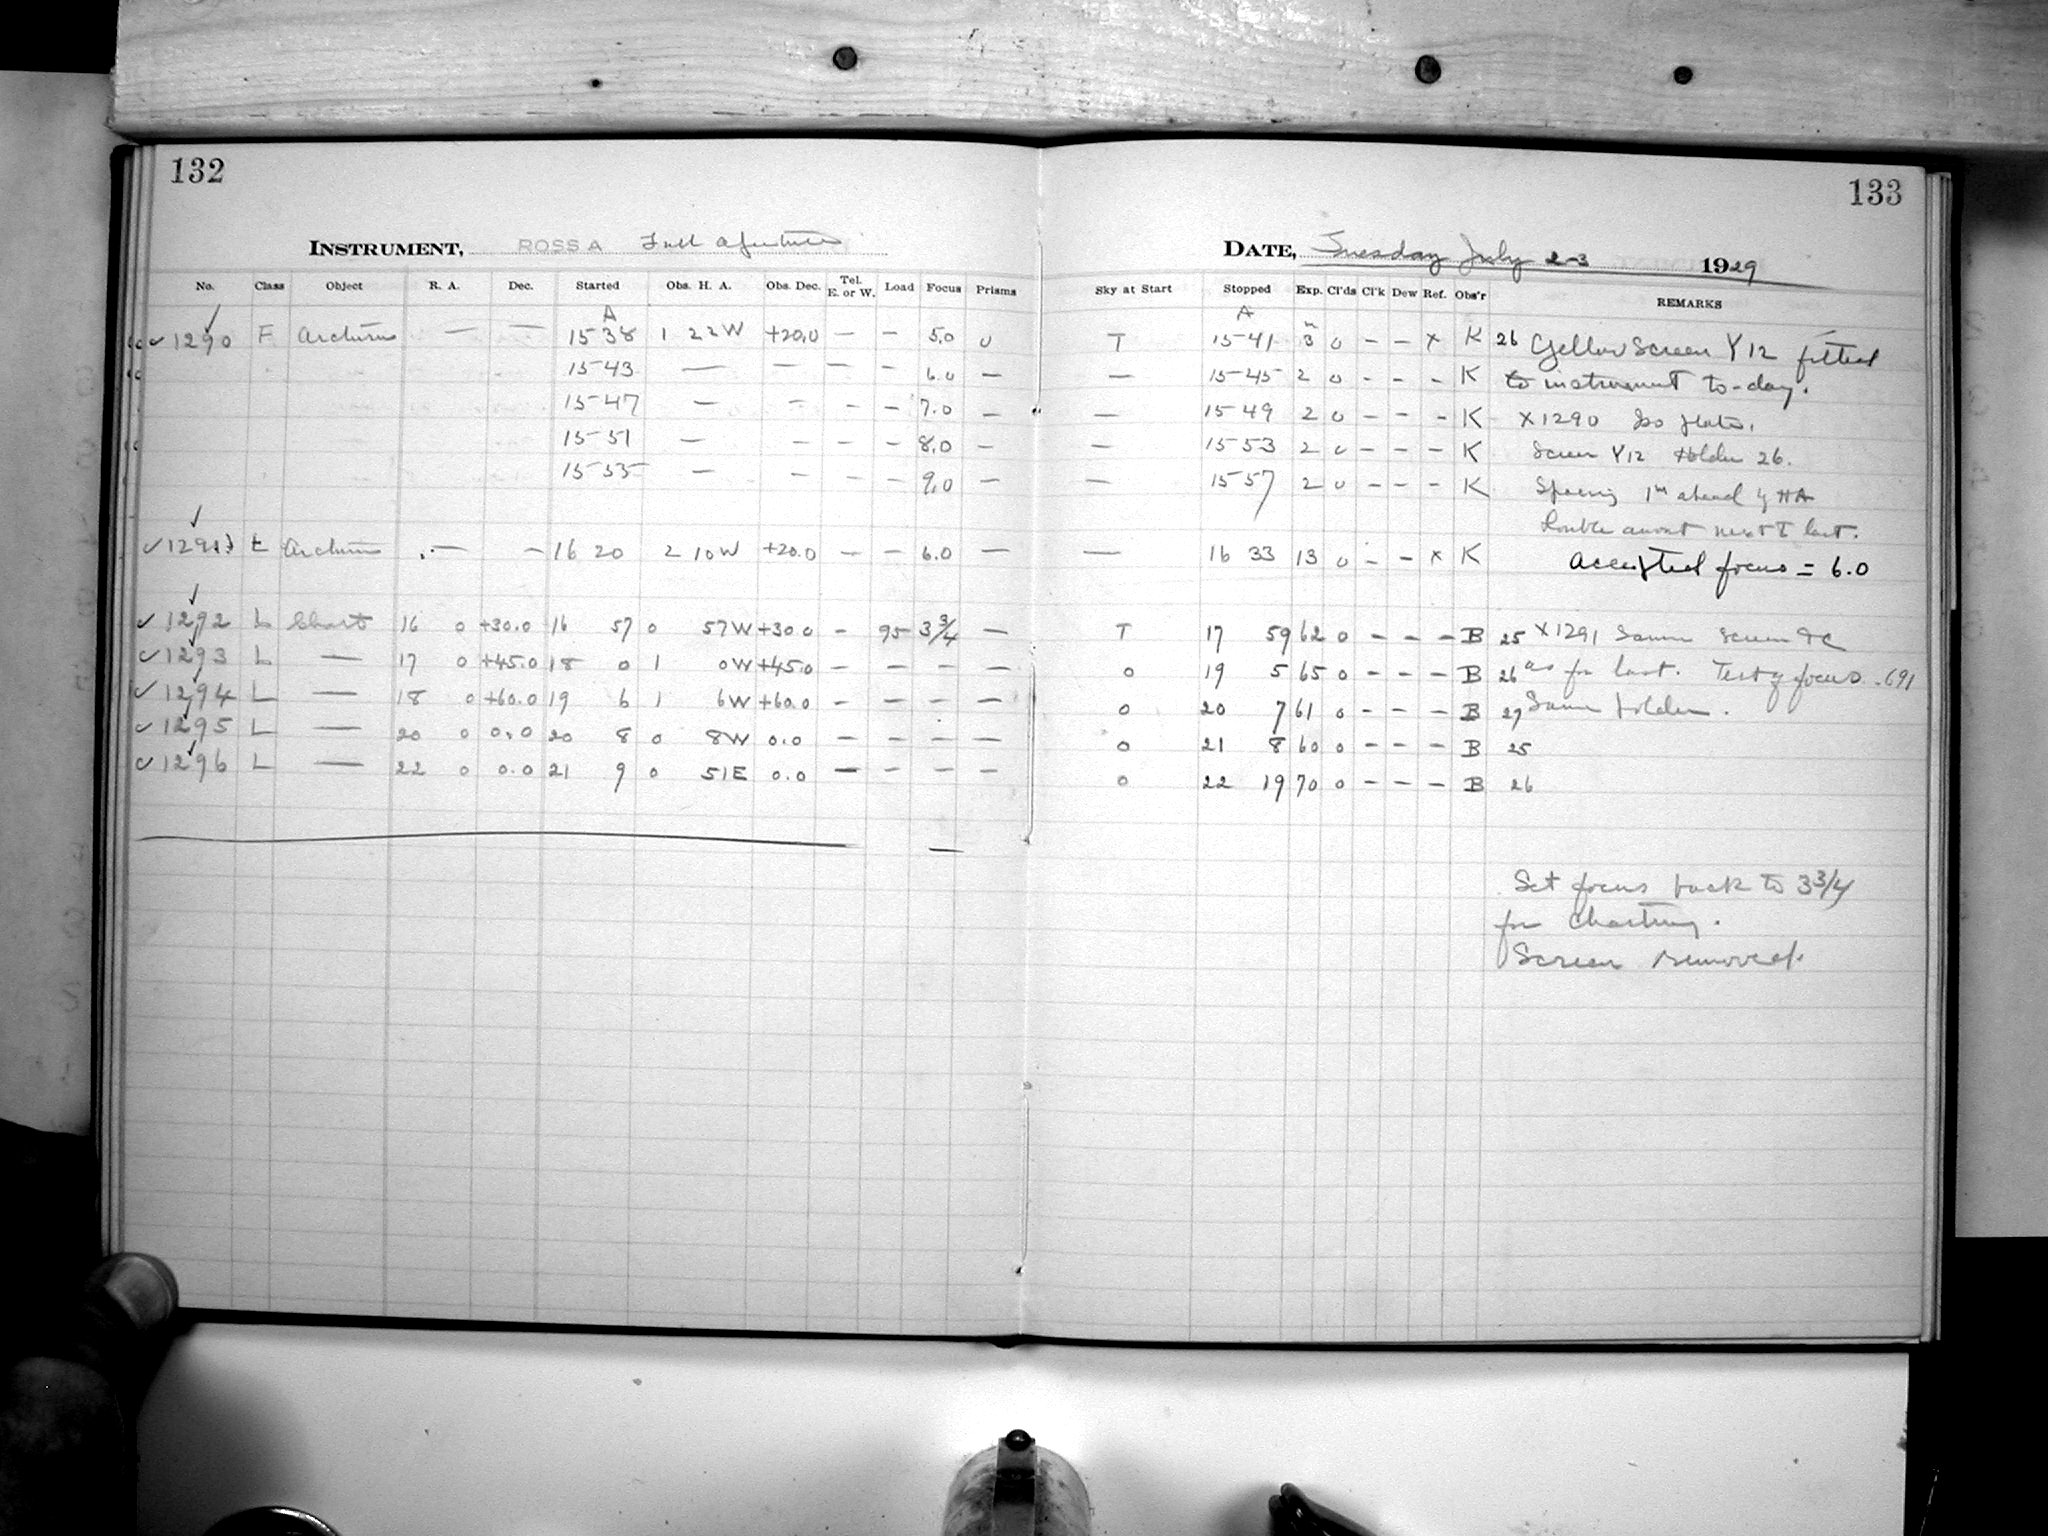 132
133
INSTRUMENT, ROSS A Full aperture
DATE, Tuesday July 2-3 1929
No. Class Object R. A. Dec. Started Obs. H. A. Obs. Dec. Tel. E. or W. Load Focus Prisms Sky at Start Stopped Exp. Cl'ds Cl'k Dew Ref. Obs'r REMARKS
A A m
✓ 1290 F Arcturus — — 15 38 1 22 W +20.0 — — 5.0 0 T 15 41 3 0 — — x K 26 Yellow Screen Y12 fitted
15 43 — — — — 6.0 — — 15 45 2 0 - - - K to instrument to-day.
15 47 — — — — 7.0 — — 15 49 2 0 — — - K X1290 Iso plate.
15 51 — — — — 8.0 — — 15 53 2 0 — — — K Screen Y12 Holder 26.
15 55 — — 9.0 — — 15 57 2 0 — — - K Spacing 1m ahead of HA
Double amount next to last.
✓ 1291 Arcturus — — 16 20 2 10 W +20.0 — — 6.0 — — 16 33 13 0 — — x K Accepted focus = 6.0
✓ 1292 L Chart 16 0 +30.0 16 57 0 57 W +30.0 — 95 3 3/4 — T 17 59 62 0 — — — B 25 X1291 Same screen &c
✓ 1293 L — 17 0 +45.0 18 0 1 0 W +45.0 — — — — 0 19 5 65 0 — — — B 26 as for last. Test of focus
✓ 1294 L — 18 0 +60.0 19 6 1 6 W +60.0 — — — — 0 20 7 61 0 — — — B 27 Same holder.
✓ 1295 L — 20 0 0.0 20 8 0 8 W 0.0 — — — — 0 21 8 60 0 — — — B 25
✓ 1296 L — 22 0 0.0 21 9 0 51 E 0.0 — — — — 0 22 19 70 0 — — — B 26
Set focus back to 3 3/4
for charting.
Screen removed.